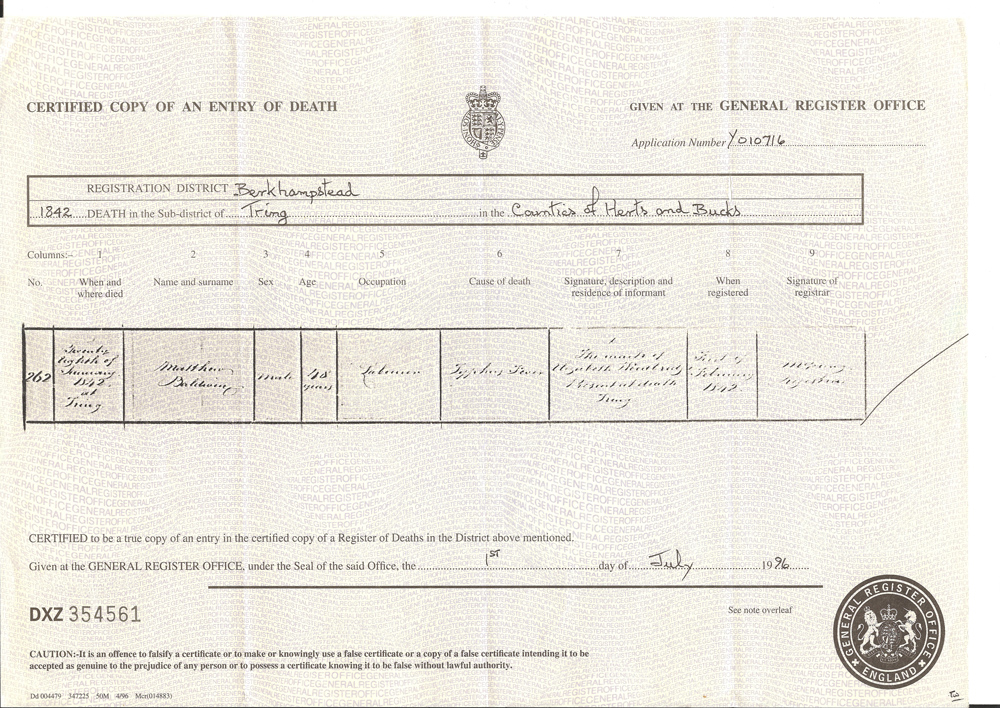 CERTIFIED COPY OF AN ENTRY OF DEATH
GIVEN AT THE GENERAL REGISTER OFFICE
Application Number Y010716
REGISTRATION DISTRICT Berkhampstead
1842 DEATH in the Sub-district of Tring in the Counties of Herts and Bucks
Columns:- 1 2 3 4 5 6 7 8 9
No. When and where died Name and surname Sex Age Occupation Cause of death Signature, description and residence of informant When registered Signature of registrar
262
Twenty
eighth of
January
1842
at
Tring
Matthew
Baldwin
male
48
years
Labourer
Typhus Fever
The mark of
Elizabeth
Present at death
Tring
First of
February
1842
CERTIFIED to be a true copy of an entry in the certified copy of a Register of Deaths in the District above mentioned.
Given at the GENERAL REGISTER OFFICE, under the Seal of the said Office, the 1ST day of July 1996
DXZ 354561
See note overleaf
GENERAL REGISTER OFFICE
ENGLAND
CAUTION:-It is an offence to falsify a certificate or to make or knowingly use a false certificate or a copy of a false certificate intending it to be
accepted as genuine to the prejudice of any person or to possess a certificate knowing it to be false without lawful authority.
Dd 004479 347225 50M 4/96 Mcr(014883)